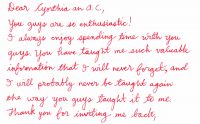 Dear Cynthia an A.C,
You guys are so enthusiastic!
I always enjoy spending time with you
guys. You have taught me such valuable
information that I will never forget, and
I will probably never be taught again
the way you guys taught it to me.
Thank you for inviting me back,